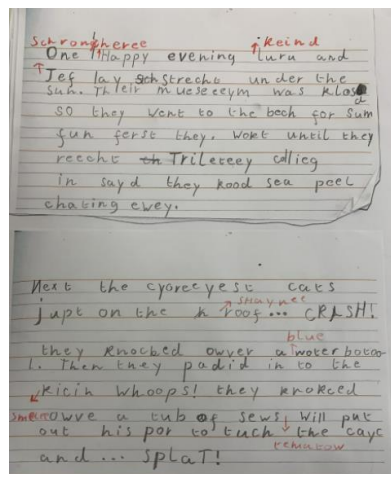 Schrong heree keind
One Happy evening Luru and
Jef lay Strecht under the
Sun. Their mueseeym was klosd
so they went to the bech for sum
fun ferst they. Wort until they
reecht Trileteey callieg
in sayd they kood sea peel
chating ewey.
Next the cyoreeyest cats
shaynee
jupt on the roog... CRASH!
blue
they knocked owver a woter botoo
l. Then they padid in to the
kicin whoops! they knoked
owve a tub of sews will put
out his por to tuch the cayc
tematow
and ... SPLaT!